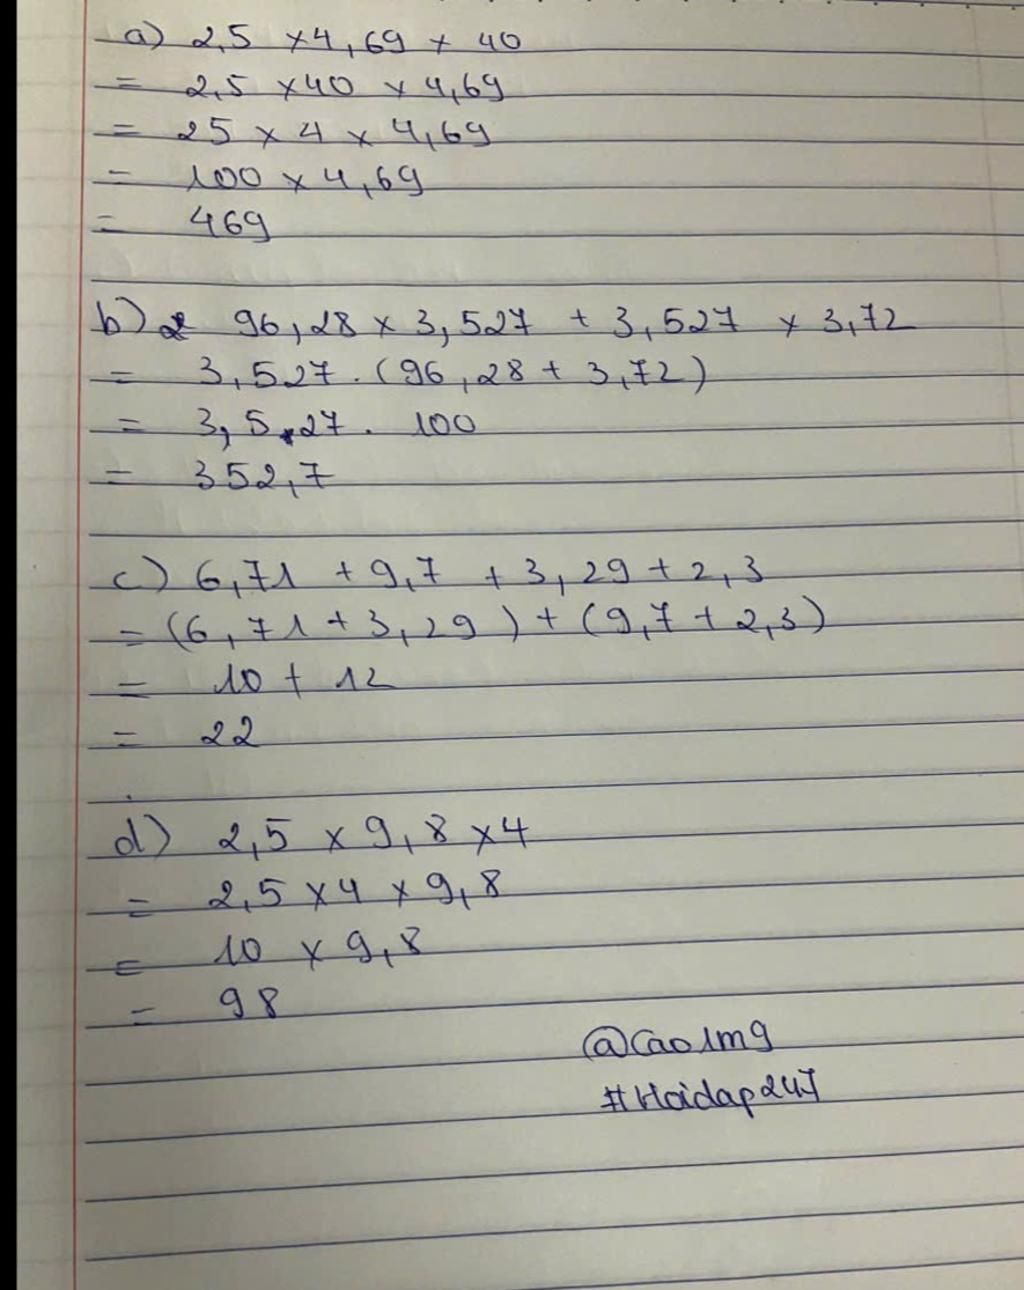 a) 2,5 x 4,69 x 40
= 2,5 x 40 x 4,69
= 25 x 4 x 4,69
= 100 x 4,69
= 469
b) 96,28 x 3,527 + 3,527 x 3,72
= 3,527 . (96,28 + 3,72)
= 3,5 27 . 100
= 352,7
c) 6,71 + 9,7 + 3,29 + 2,3
= (6,71 + 3,29) + (9,7 + 2,3)
= 10 + 12
= 22
d) 2,5 x 9,8 x 4
= 2,5 x 4 x 9,8
= 10 x 9,8
= 98
@Cao1m9
#Hoidap247